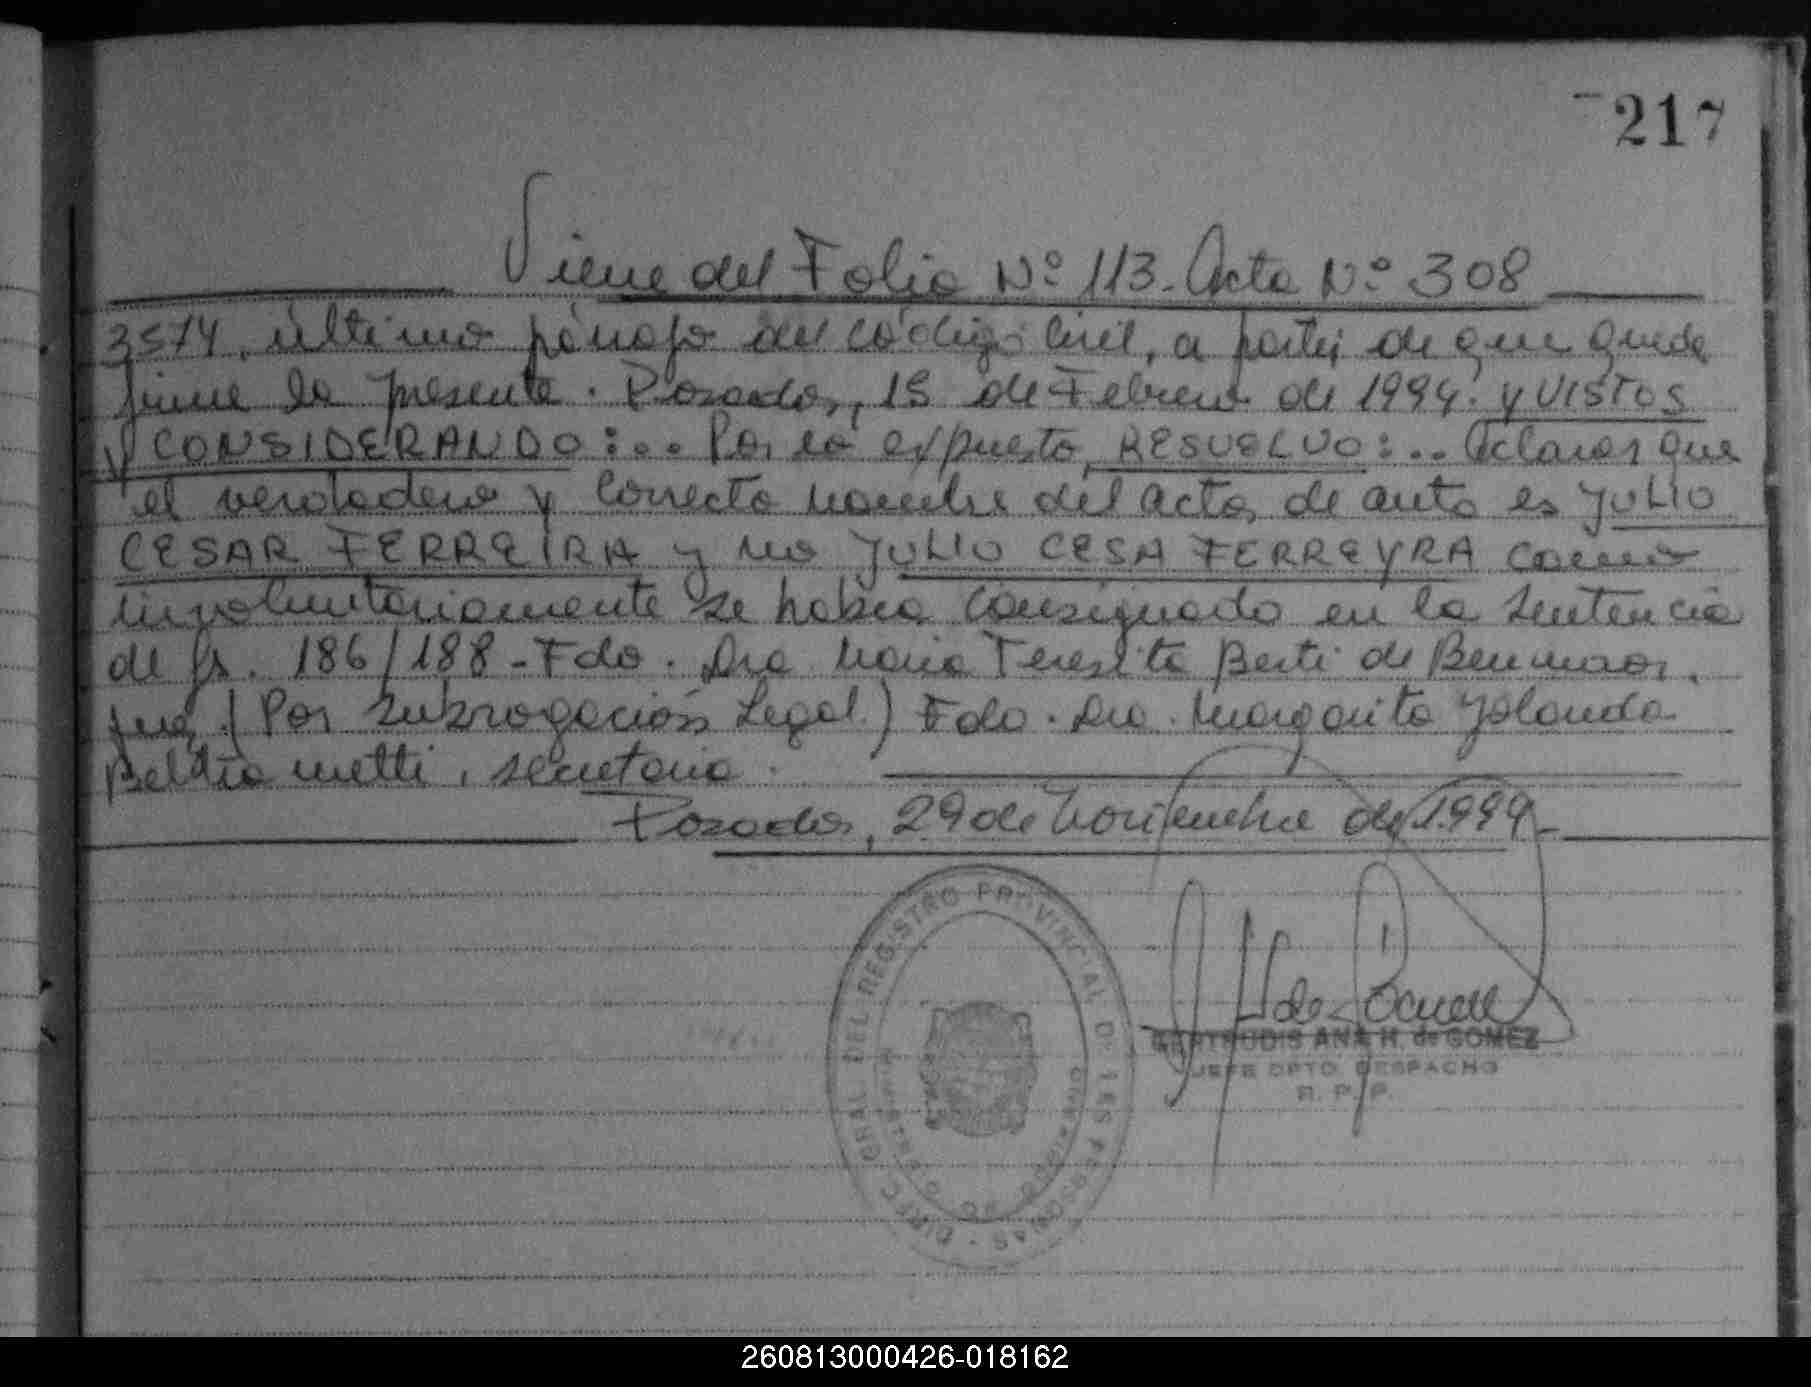 217
Viene del Folio Nº 113. Acta Nº 308
3574, último párrafo del código Civil, a partir de que quede
firme la presente. Posadas, 15 de Febrero de 1994. y VISTOS
y CONSIDERANDO:... Por lo expuesto, RESUELVO:... Aclarar que
el verdadero y correcto nombre del actor de auto es JULIO
CESAR FERREIRA y no JULIO CESA FERREYRA como
involuntariamente se había consignado en la sentencia
de fs. 186/188 - Fdo. Dra Maria Teresita Berti de
Juez (Por Subrogación Legal.) Fdo. Dra. Margarita Yolanda
secretaria.
Posadas, 29 de Noviembre de 1.999-
DIREC. GRAL. DEL REGISTRO PROVINCIAL DE LAS PERSONAS
GERTRUDIS ANA H. de GOMEZ
JEFE DPTO. DESPACHO
R. P. P.
260813000426-018162